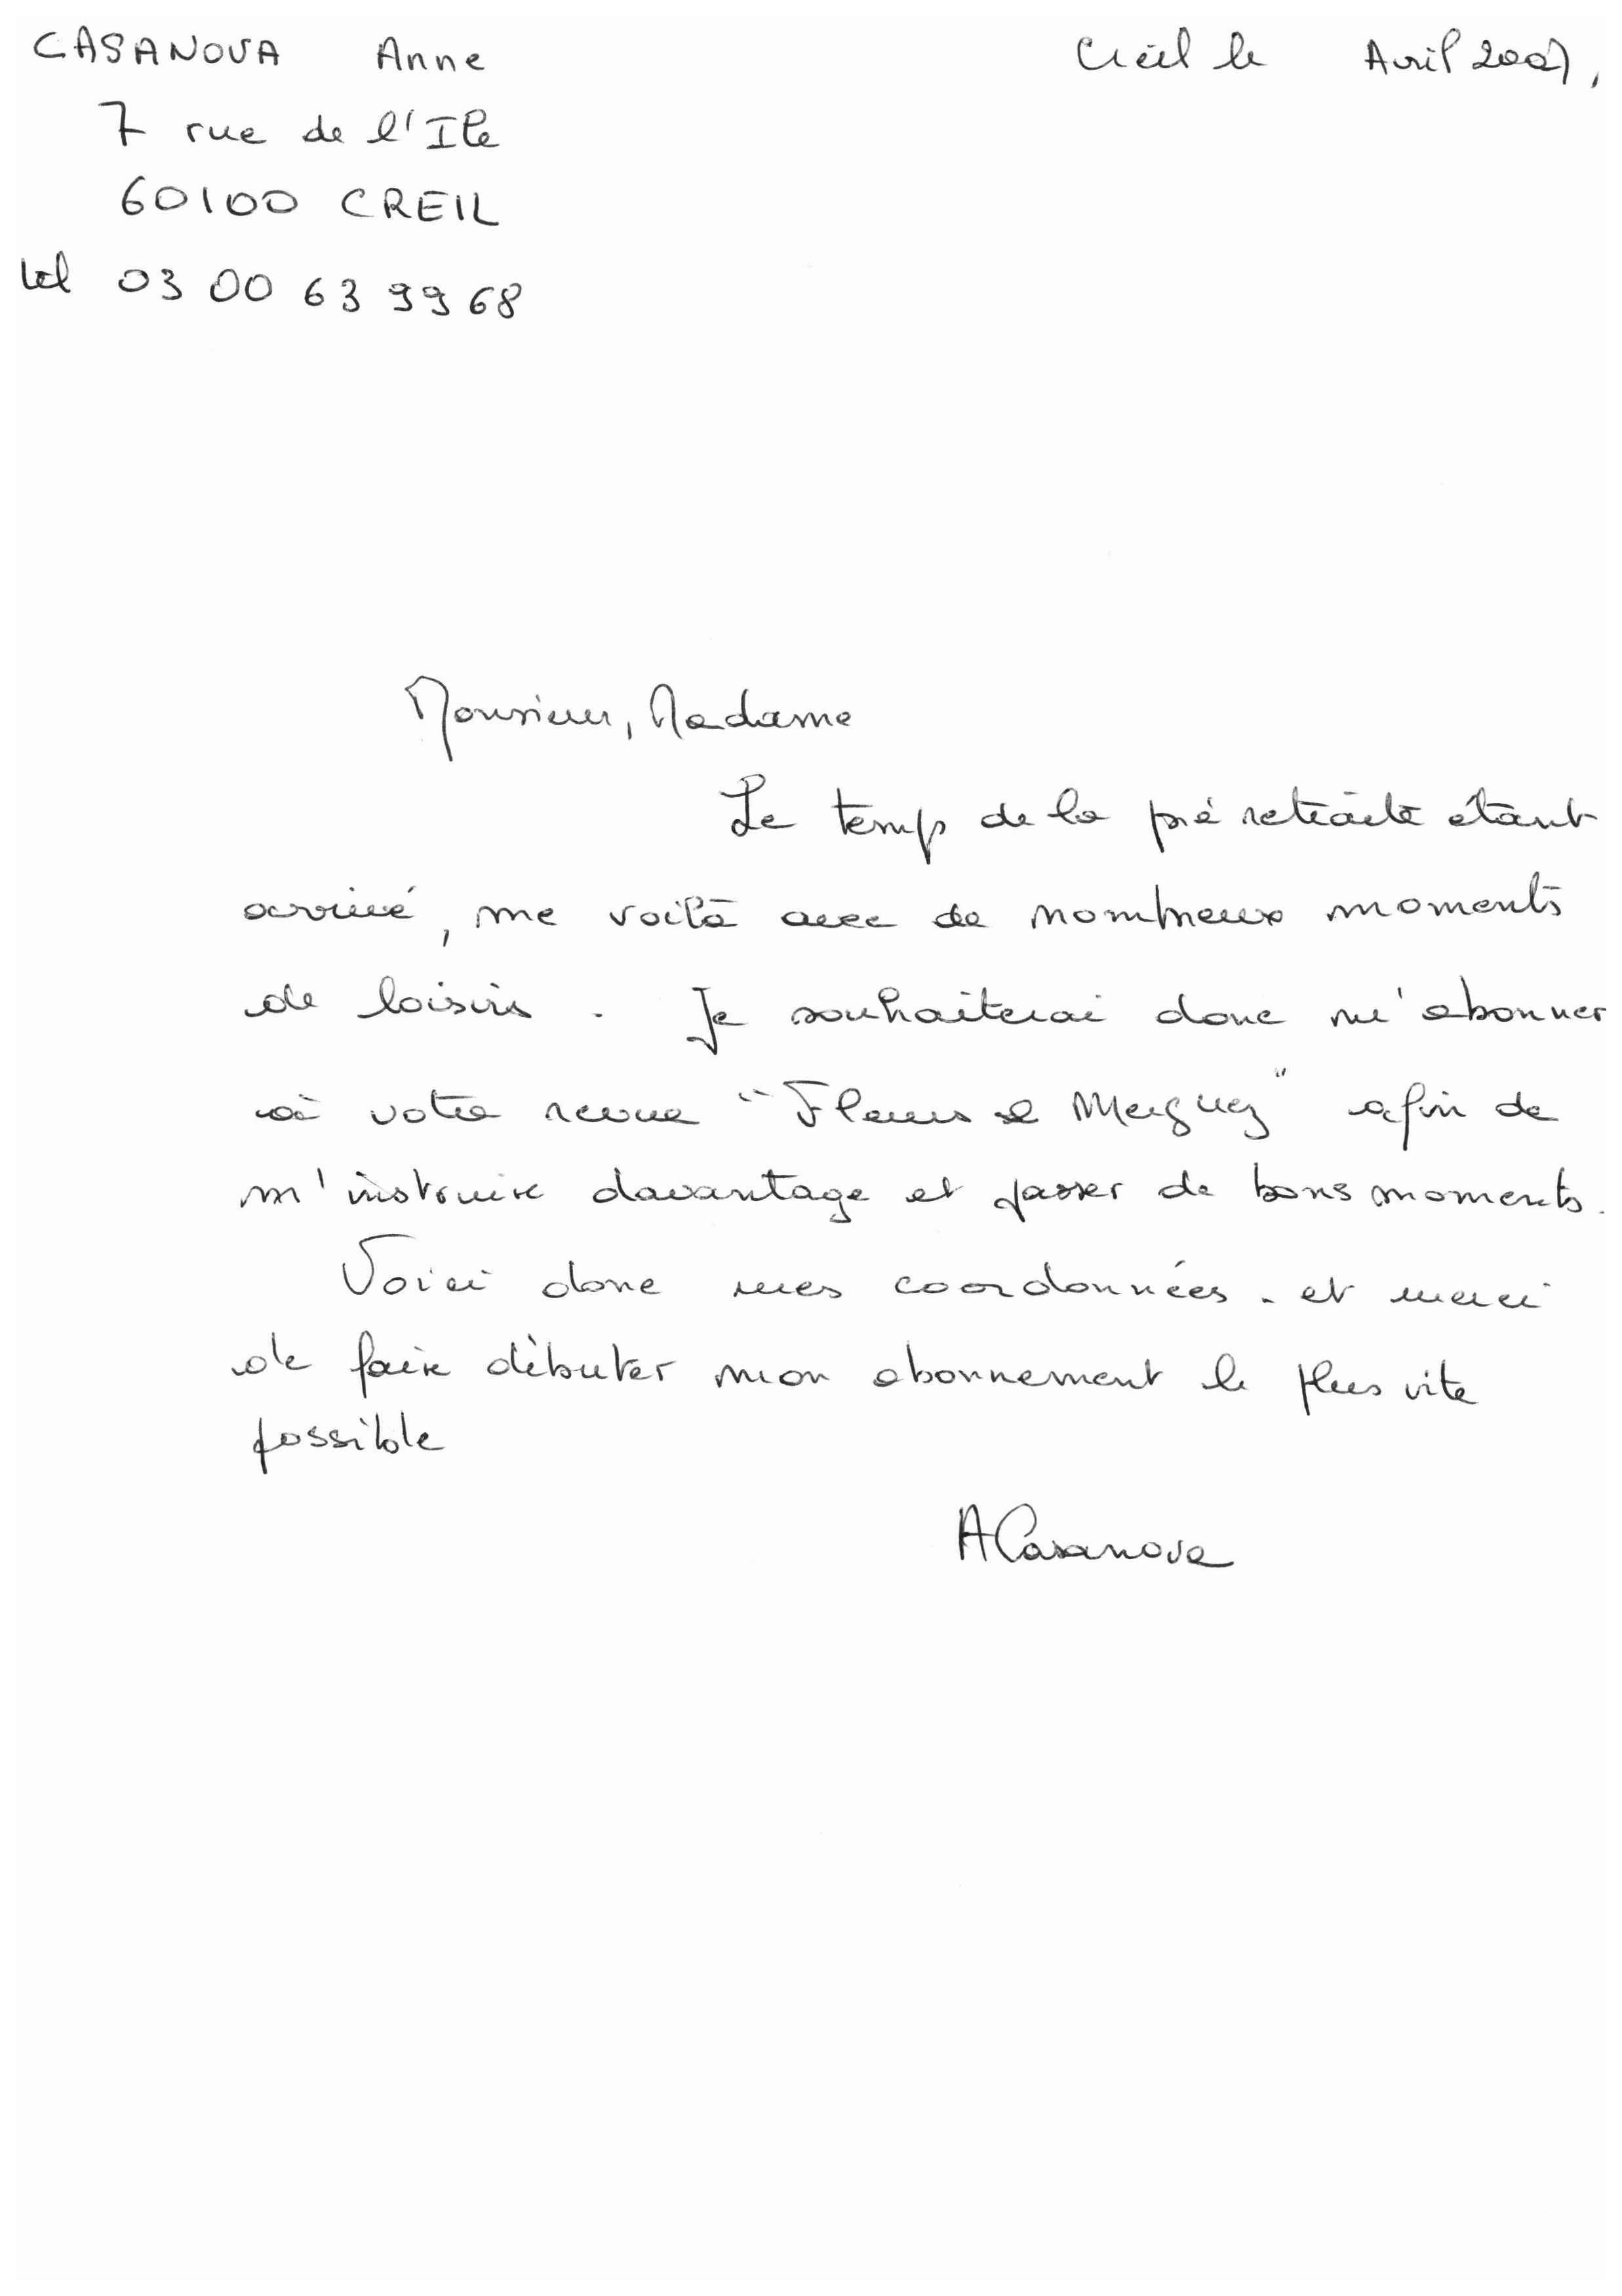 CASANOVA Anne
Creil le Avril 2007,
7 rue de l'Ile
60100 CREIL
tel 03 00 63 99 68
Monsieur, Madame
Le temps de la pré retraite étant
arrivé, me voilà avec de nombreux moments
de loisirs . Je souhaiterai donc m'abonner
à votre revue "Fleurs de Merguez" afin de
m'instruire davantage et passer de bons moments.
Voici donc mes coordonnées . et merci
de faire débuter mon abonnement le plus vite
possible
A Casanova